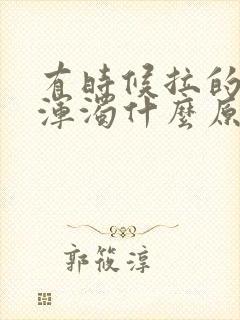 有時候拉的
渾濁什麼原
郭筱淳